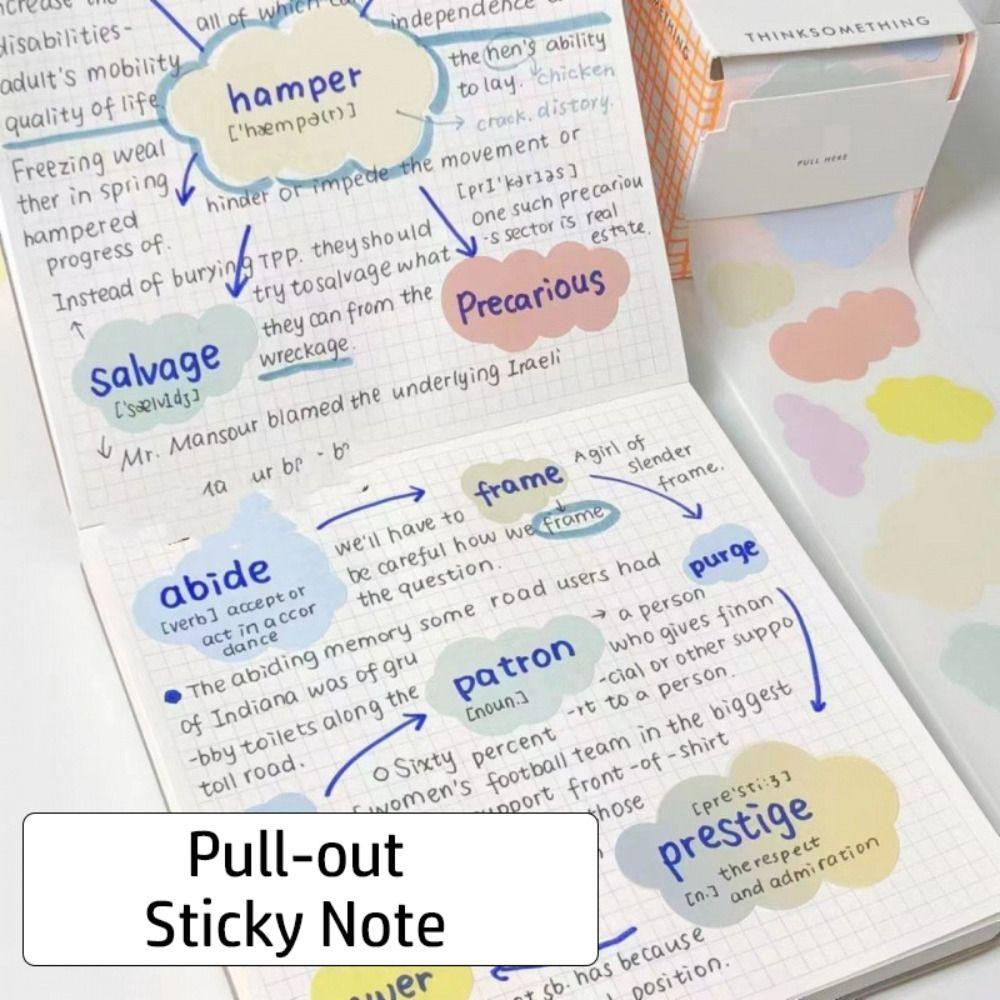 increase the
disabilities-
adult's mobility
quality of life.
all of which
independence
hamper
['hæmpə(r)]
the hen's ability
to lay. chicken
crack. distory.
Freezing weal
ther in spring
hampered
progress of.
hinder or impede the movement or
[prɪ'kərɪəs]
one such precariou
-s sector is real
estate.
Precarious
Instead of burying TPP. they should
try to salvage what
they can from the
wreckage.
salvage
['sælvɪdʒ]
Mr. Mansour blamed the underlying Iraeli
THINKSOMETHING
PULL HERE
abide
[verb] accept or
act in accor
dance
frame
A girl of
slender
frame.
we'll have to
be careful how we frame
the question.
purge
The abiding memory some road users had
of Indiana was of gru
-bby toilets along the
toll road.
patron
[noun.]
a person
who gives finan
-cial or other suppo
-rt to a person.
Sixty percent
women's football team in the biggest
support front-of-shirt
those
[pre'sti:ʒ]
prestige
[n.] the respect
and admiration
sb. has because
position.
Pull-out
Sticky Note